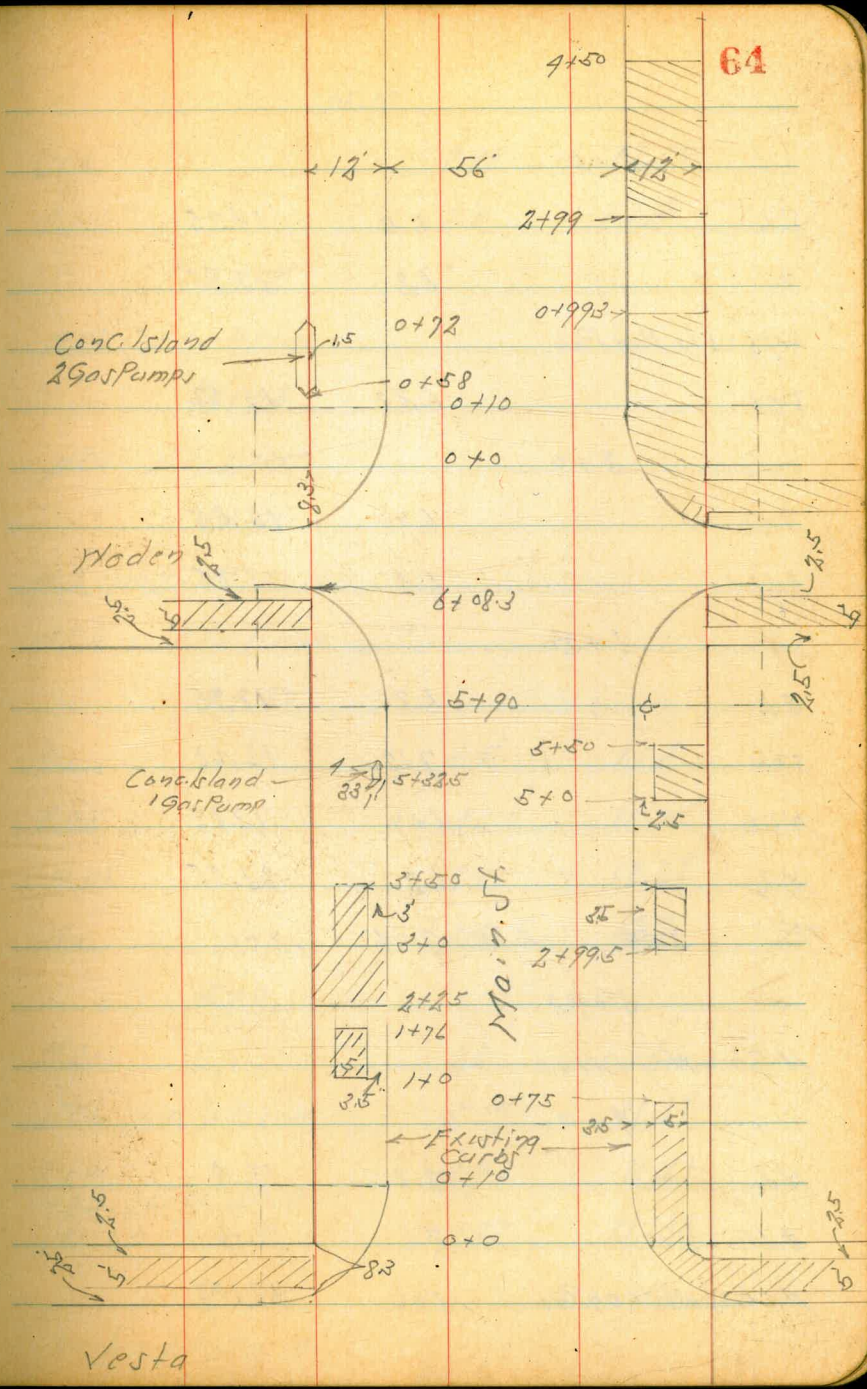 64
4+50
12' 56' 12'
2+99
0+72
0+99.3
Conc. Island
2 Gas Pumps
1.5
0+58
0+10
0+0
8.3
Woden
2.5
2.5
6+08.3
2.5
5
5
5+90
2.5
5+50
4
Conc. Island
1 Gas Pump
3.3
5+32.5
5+0
2.5
3+50
3'
3.5
3+0
2+99.5
Main St.
2+25
1+76
5'
1+0
3.5
0+75
3.5
5'
Existing
Curbs
0+10
2.5
2.5
0+0
2.5
5'
8.3
5
Vesta